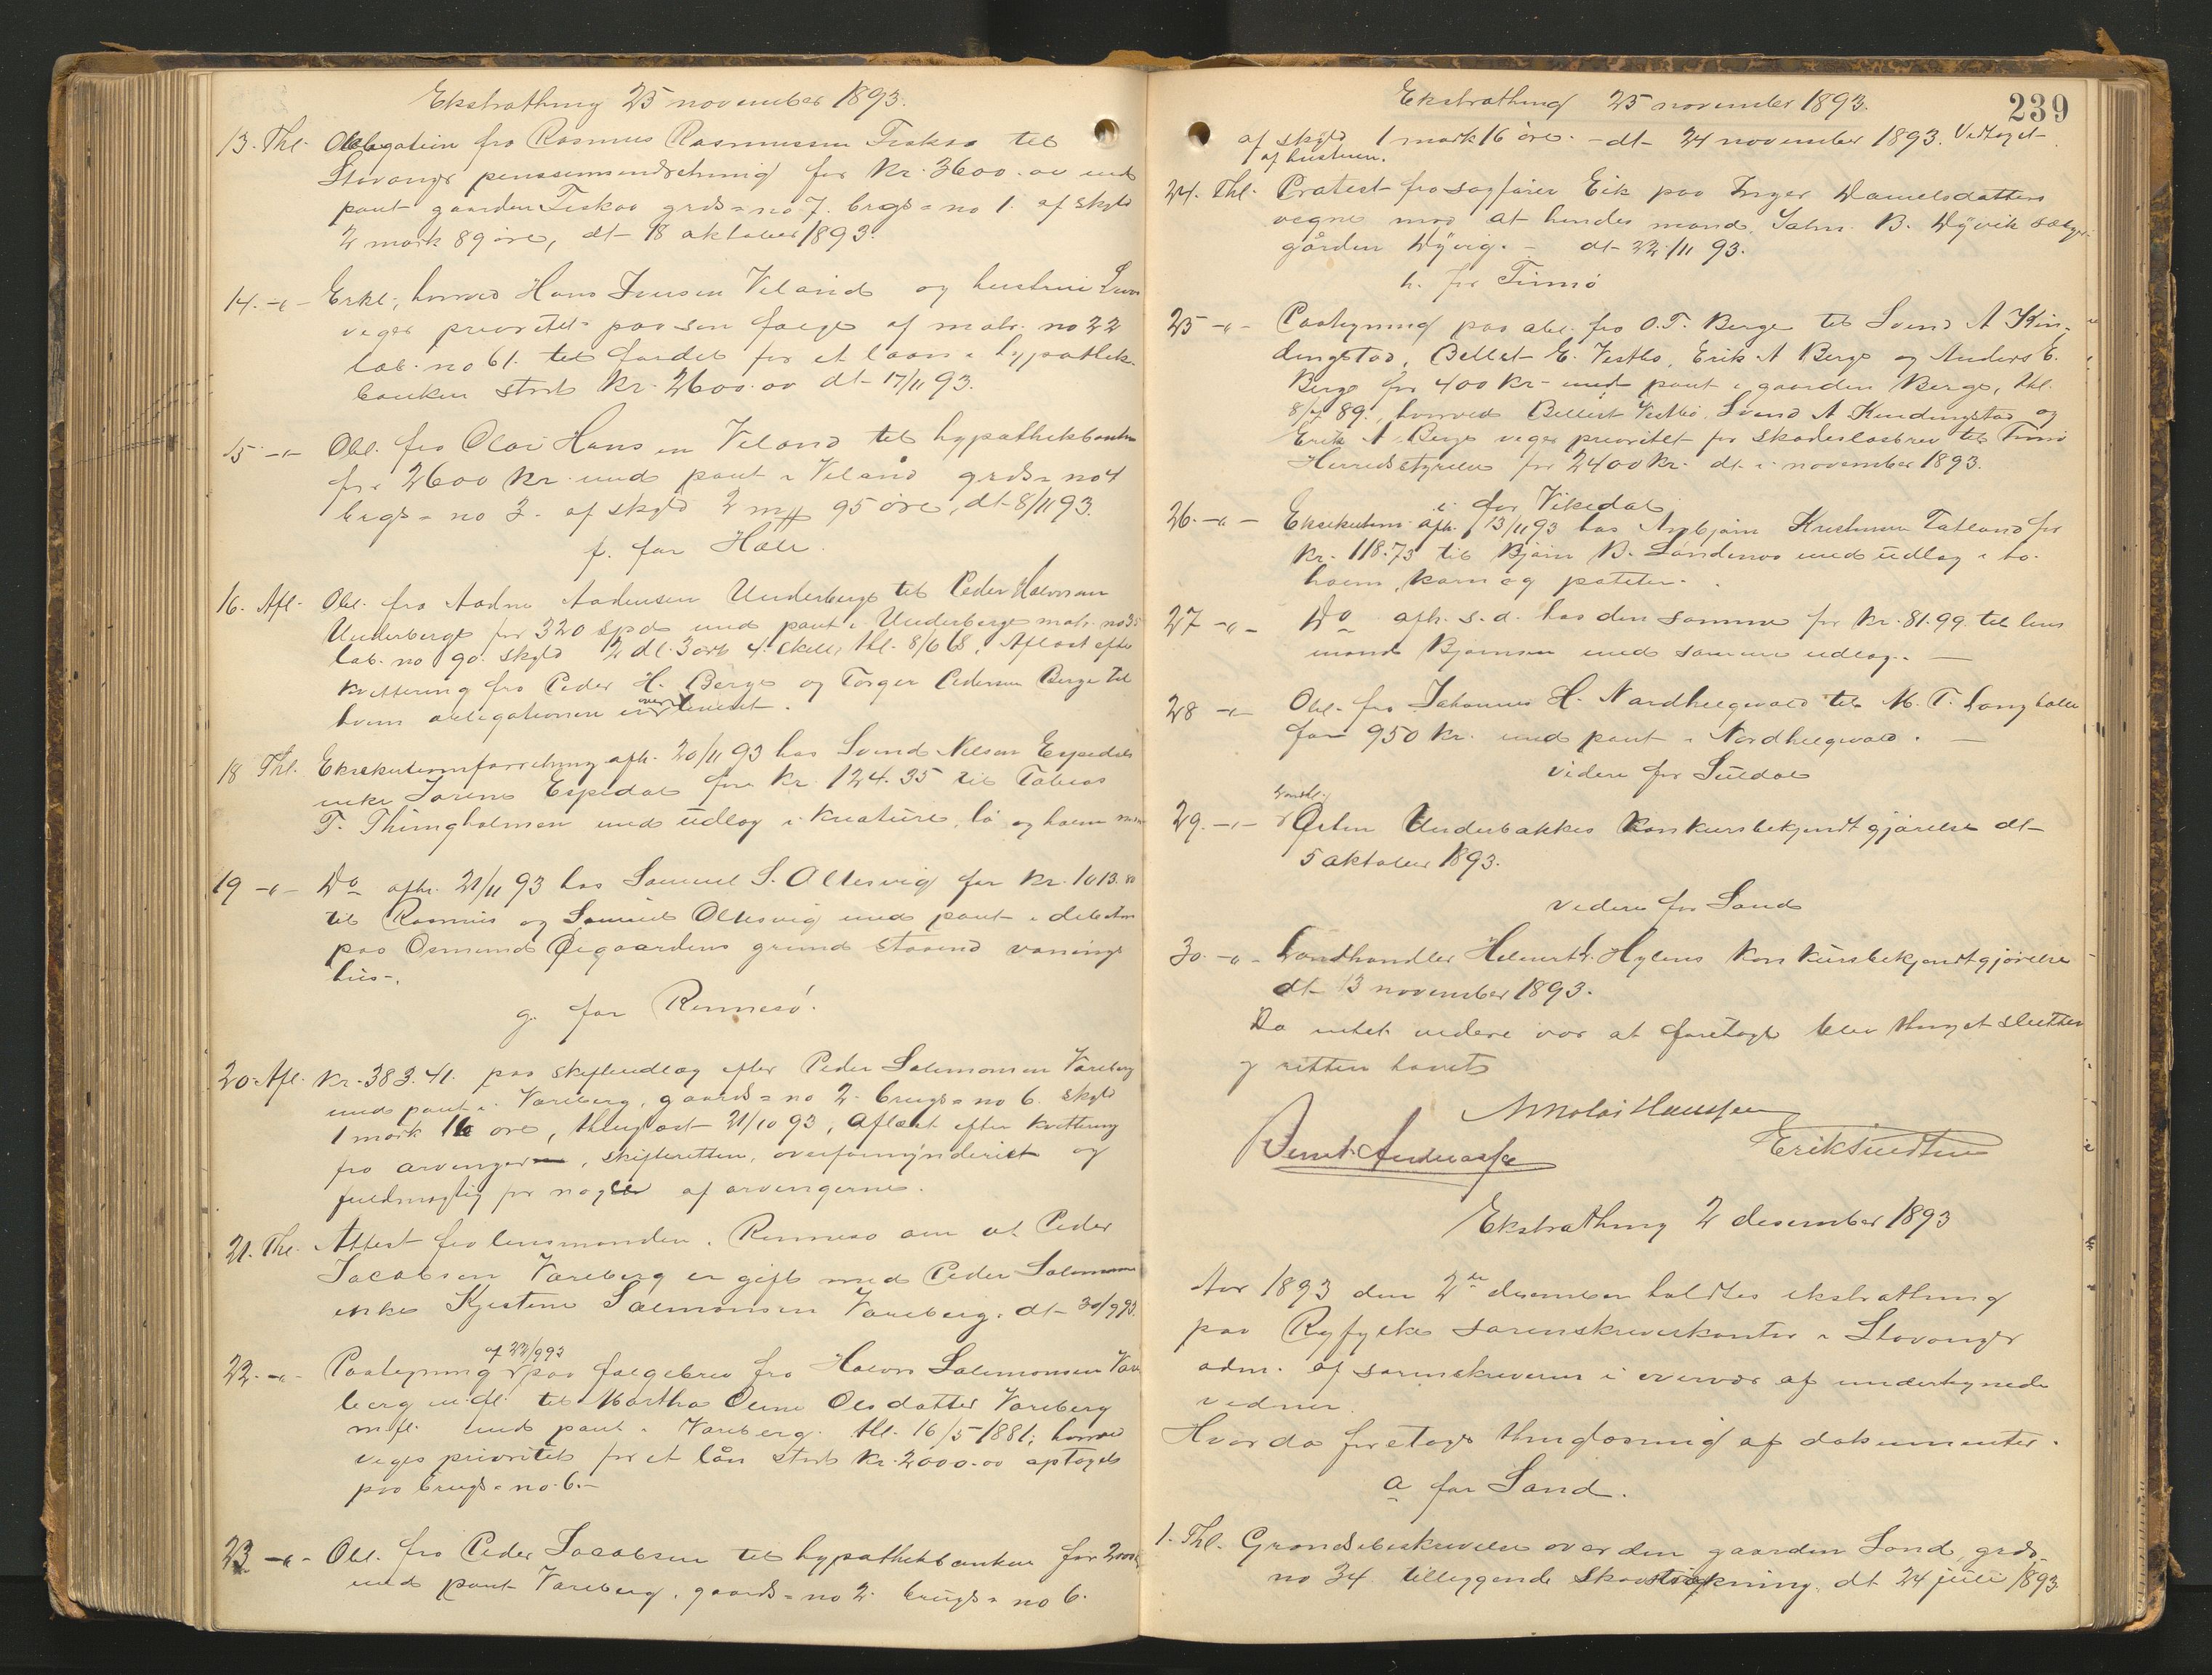 Ekstrathing 25 november 1893.
13. Thl. Obligation fra Rasmus Rasmussen Fiskaa til
Stavanger pensionsindretning for Kr. 3600.00 med
pant gaarden Fiskaa grds=no 7. brgs=no 1. af skyld
2 mark 89 øre, dt 18 oktober 1893.
14. -"- Erkl. hvorved Hans Iversen Veland og hustru
viger prioritet paa sin folge af matr. no 22
løb. no 61. til fordel for et laan i hypothek-
banken stort Kr. 2600.00 dt 17/11 93.
15 -"- Obl. fra Olai Hansen Veland til hypothekbanken
for 2600 Kr. med pant i Veland grds=no 4
brgs=no 3. af skyld 2 m# 95 øre, dt 8/11 93.
f. for Hale.
16. Afl. Obl. fra Aadne Aadnesen Underberge til Peder Halvorsen
Underberge for 320 spd med pant i Underberge matr. no 35
løb. no 90. skyld ½ dl. 3 ort 4 skill, thl. 8/6 68, Aflæst efter
kvittering fra Peder H. Berge og Torger Pedersen Berge til
hvem obligationen er overleveret.
18 Thl. Eksekutionsforretning afh. 20/11 93 hos Svend Nilsen Espedals
enke Soren Espedal for Kr. 124.35 til Tobias
T. Thimgholmen med udlæg i kreature, lø og hoem m.m
19 -"- Do afh. 21/11 93 hos Samuel S. Oltesvig for Kr. 1013.80
til Rasmus og Samuel Oltesvig med pant i debitors
paa Osmund Øigaardens grund staaende vaanings
hus-.
g. for Rennesø.
20. Afl. Kr. 383.41. paa skifteudlæg efter Peder Salomonsen Vareberg
med pant i Vareberg, gaards=no 2. brugs=no 6. skyld
1 mark 16 øre, thinglæst 21/10 93, Aflæst efter kvittering
fra arvinger, skifteretten, overformynderiet og
fuldmægtig for nogle af arvingerne.
21. Thl. Attest fra lensmanden i Rennesø om at Peder
Jacobsen Vareberg er gift med Peder Salomonsens
enke Kjestine Salmonsen Vareberg. dt 30/9 93.
22. -"- Paategning af 22/9 93 paa folgebrev fra Halvor Salomonsen Vare
berg m.fl. til Martha Oline Olsdatter Vareberg
m.fl. med pant i Vareberg thl. 16/5 1881; hvorved
viges prioritet for et lån stort Kr. 2000.00 optaget
paa brugs=no 6.-
23 -"- Obl. fra Peder Jacobsen til hypothekbanken for 2000
med pant Vareberg, gaards=no 2. brugs=no 6.
239
Ekstrathing 25 november 1893.
af skyld 1 mark 16 øre. - dt 24 november 1893. Vedtaget
af hustruen.
24. Thl. Protest fra sagfører Eik paa Inger Danielsdatters
vegne mod at hendes mand, B. Dÿvik sælger
gården Dÿvig. - dt 22/11 93.
h. for Finnø
25 -"- Paategning paa obl. fra O.T. Berge til Svend A Kin-
dingstad, Bellest E. Vestbø, Erik A Berge og Anders E.
Berge for 400 Kr. med pant i gaarden Berge, thl.
8/7 89, hvorved Bellest Vestbø, Svend A Kindingstad og
Erik A. Berge viger prioritet for skadesløsbrev til Finnø
Herredsstyrelse for 2400 Kr. dt i november 1893.
i. for Vikedal
26. -"- Eksekution afh. 13/11 93 hos Kristensen Tatland for
Kr. 118.73 til Bjørn B. Søndenaa med udlæg i ko
hoem, korn og poteter.
27 -"- Do afh. s.d. hos den samme for Kr. 81.99 til lens
mand Bjørnsen med samme udlæg. -
28 -"- Obl. fra Johannes H. Nordhelgevold til M.T. Langballe
for 950 Kr. med pant i Nordhelgevold. -
videre for Suldal
29. -"- Landhl. Østen Underbakkes konkursbekjendtgjørelse dt
5 oktober 1893.
videre for Sand
30. -"- Landhandler Helmert L. Hylens konkursbekjendtgjørelse
dt 13 november 1893.
Da intet videre var at foretage blev thinget sluttet
og retten hævet
Nikolai Hanssen
Bernt Andreassen Erik Knudsen
Ekstrathing 2 desember 1893
Aar 1893 den 2den desember holdtes ekstrathing
paa Ryfylke sorenskriverkontor i Stavanger
adm. af sorenskriveren i overvær af undertegnede
vidner.
Hvor da foretoges thinglæsning af dokumenter.
a for Sand.
1. Thl. Grændsebeskrivelse over den gaarden Sand, grds-
no 34 tilliggende skovstrækning. dt 24 juli 1893